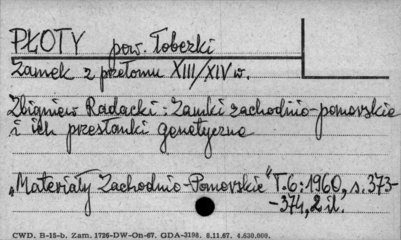 PŁOTY pow. Łobezki
Zamek z przełomu XIII/XIV w.
Zbigniew Radacki: Zamki zachodnio-pomorskie
i ich przesłanki genetyczne
„Materiały Zachodnio-Pomorskie" T.6:1960, s.373-
-374, 2 il.
CWD. B-15-b. Zam. 1726-DW-On-67. GDA-3198. 8.11.67. 4.630.000.